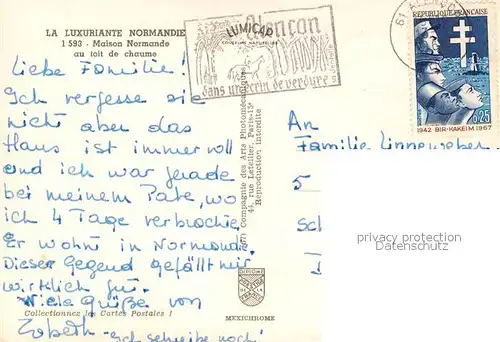 LA LUXURIANTE NORMANDIE
1 593 - Maison Normande
au toit de chaume
LUMICAP
COULEURS NATURELLES
Alençon
dans un écrin de verdure
61 ALENÇON
REPUBLIQUE FRANÇAISE
0,25
1942 BIR-HAKEIM 1967
Liebe Familie!
Ich vergesse sie
nicht aber das
Haus ist immer voll
und ich war gerade
bei meinem Pate, wo
ich 4 Tage verbrachte.
Er wohnt in Normandie.
Dieser Gegend gefällt mir
wirklich gut.
Viele Grüße von
Ich schreibe noch!
An
Familie Linneweber
5
privacy protection
Compagnie des Arts Photomécaniques
44, rue Letellier, Paris-15e
Reproduction interdite
MEXICHROME
Collectionnez les Cartes Postales !